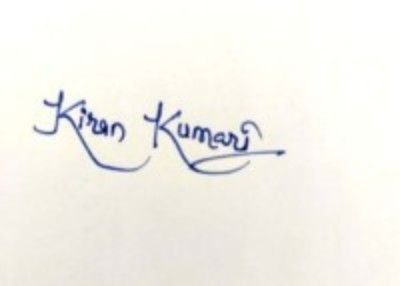 Kiran Kumari